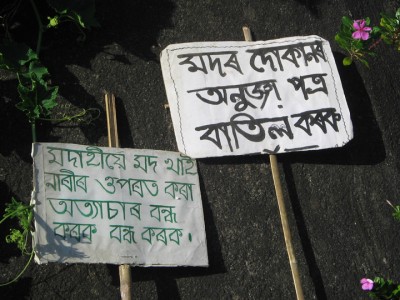 মদৰ দোকানৰ
অনুজ্ঞা পত্ৰ
বাতিল কৰক
মদাহীয়ে মদ খাই
নাৰীৰ ওপৰত কৰা
অত্যাচাৰ বন্ধ
কৰক বন্ধ কৰক.